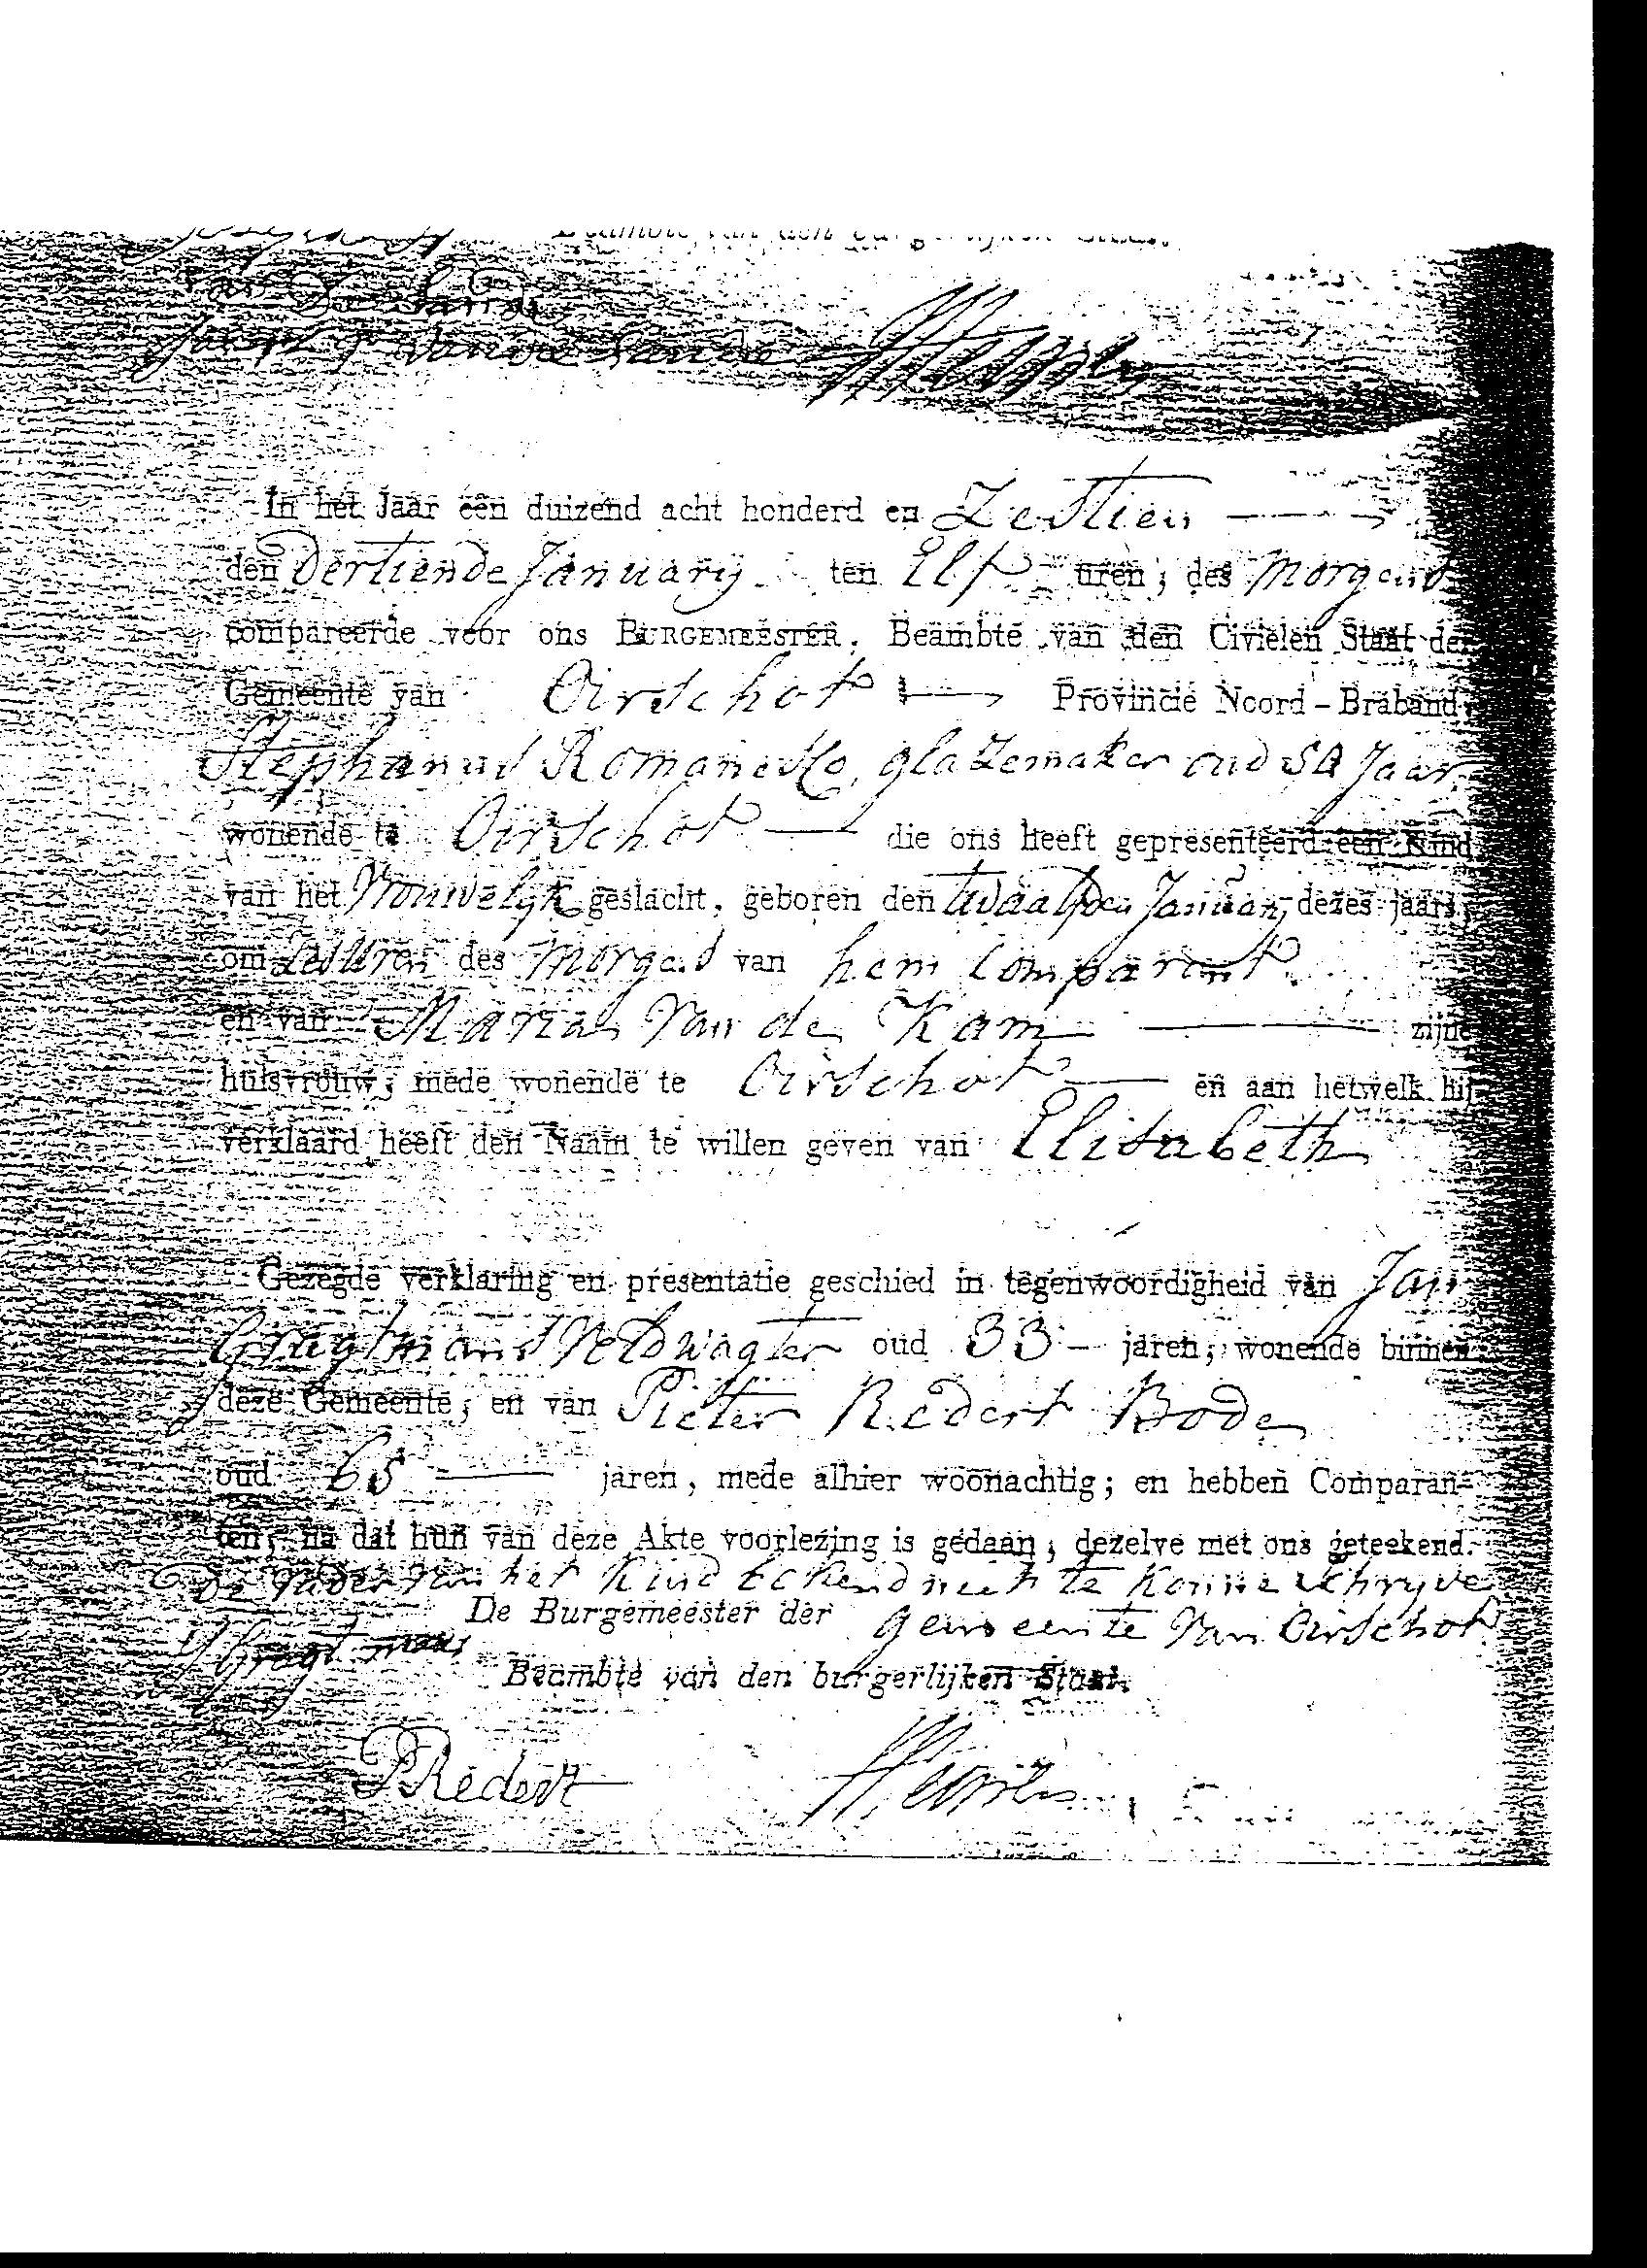 Beambte van den burgerlijken Staat.
van de Sande
In het Jaar een duizend acht honderd en Zestien
den Dertiende January ten Elf uren, des Morgens
compareerde voor ons BURGEMEESTER, Beambte van den Civielen Staat der
Gemeente van Oirschot Provincie Noord-Braband,
Stephanus Romanesko, glazemaker oud 50 Jaar
wonende te Oirschot die ons heeft gepresenteerd een Kind
van het Vrouwelyk geslacht, geboren den twaalfden January dezes jaars,
om uren des Morgens van hem Comparant
en van Maria van de Kam zijne
huisvrouw, mede wonende te Oirschot en aan hetwelk hij
verklaard heeft den Naam te willen geven van Elisabeth
Gezegde verklaring en presentatie geschied in tegenwoordigheid van Jan
Gragtmans Veldwagter oud 33 jaren, wonende binnen
deze Gemeente, en van Pieter Redert Bode
oud 65 jaren, mede alhier woonachtig; en hebben Comparan-
ten, na dat hun van deze Akte voorlezing is gedaan, dezelve met ons geteekend.
De Vader van het Kind Eckend niet te Konne schryve
De Burgemeester der gemeente van Oirschot
J Gragtmans
Beambte van den burgerlijken Staat.
P Redert